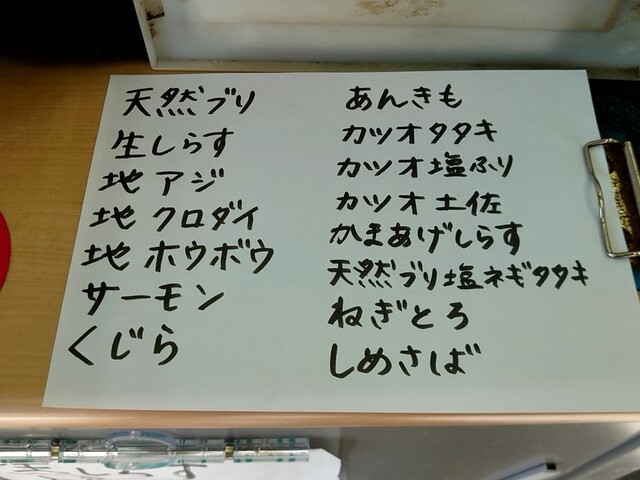 天然ブリ
生しらす
地アジ
地クロダイ
地ホウボウ
サーモン
くじら
あんきも
カツオタタキ
カツオ塩ふり
カツオ土佐
かまあげしらす
天然ブリ塩ネギタタキ
ねぎとろ
しめさば